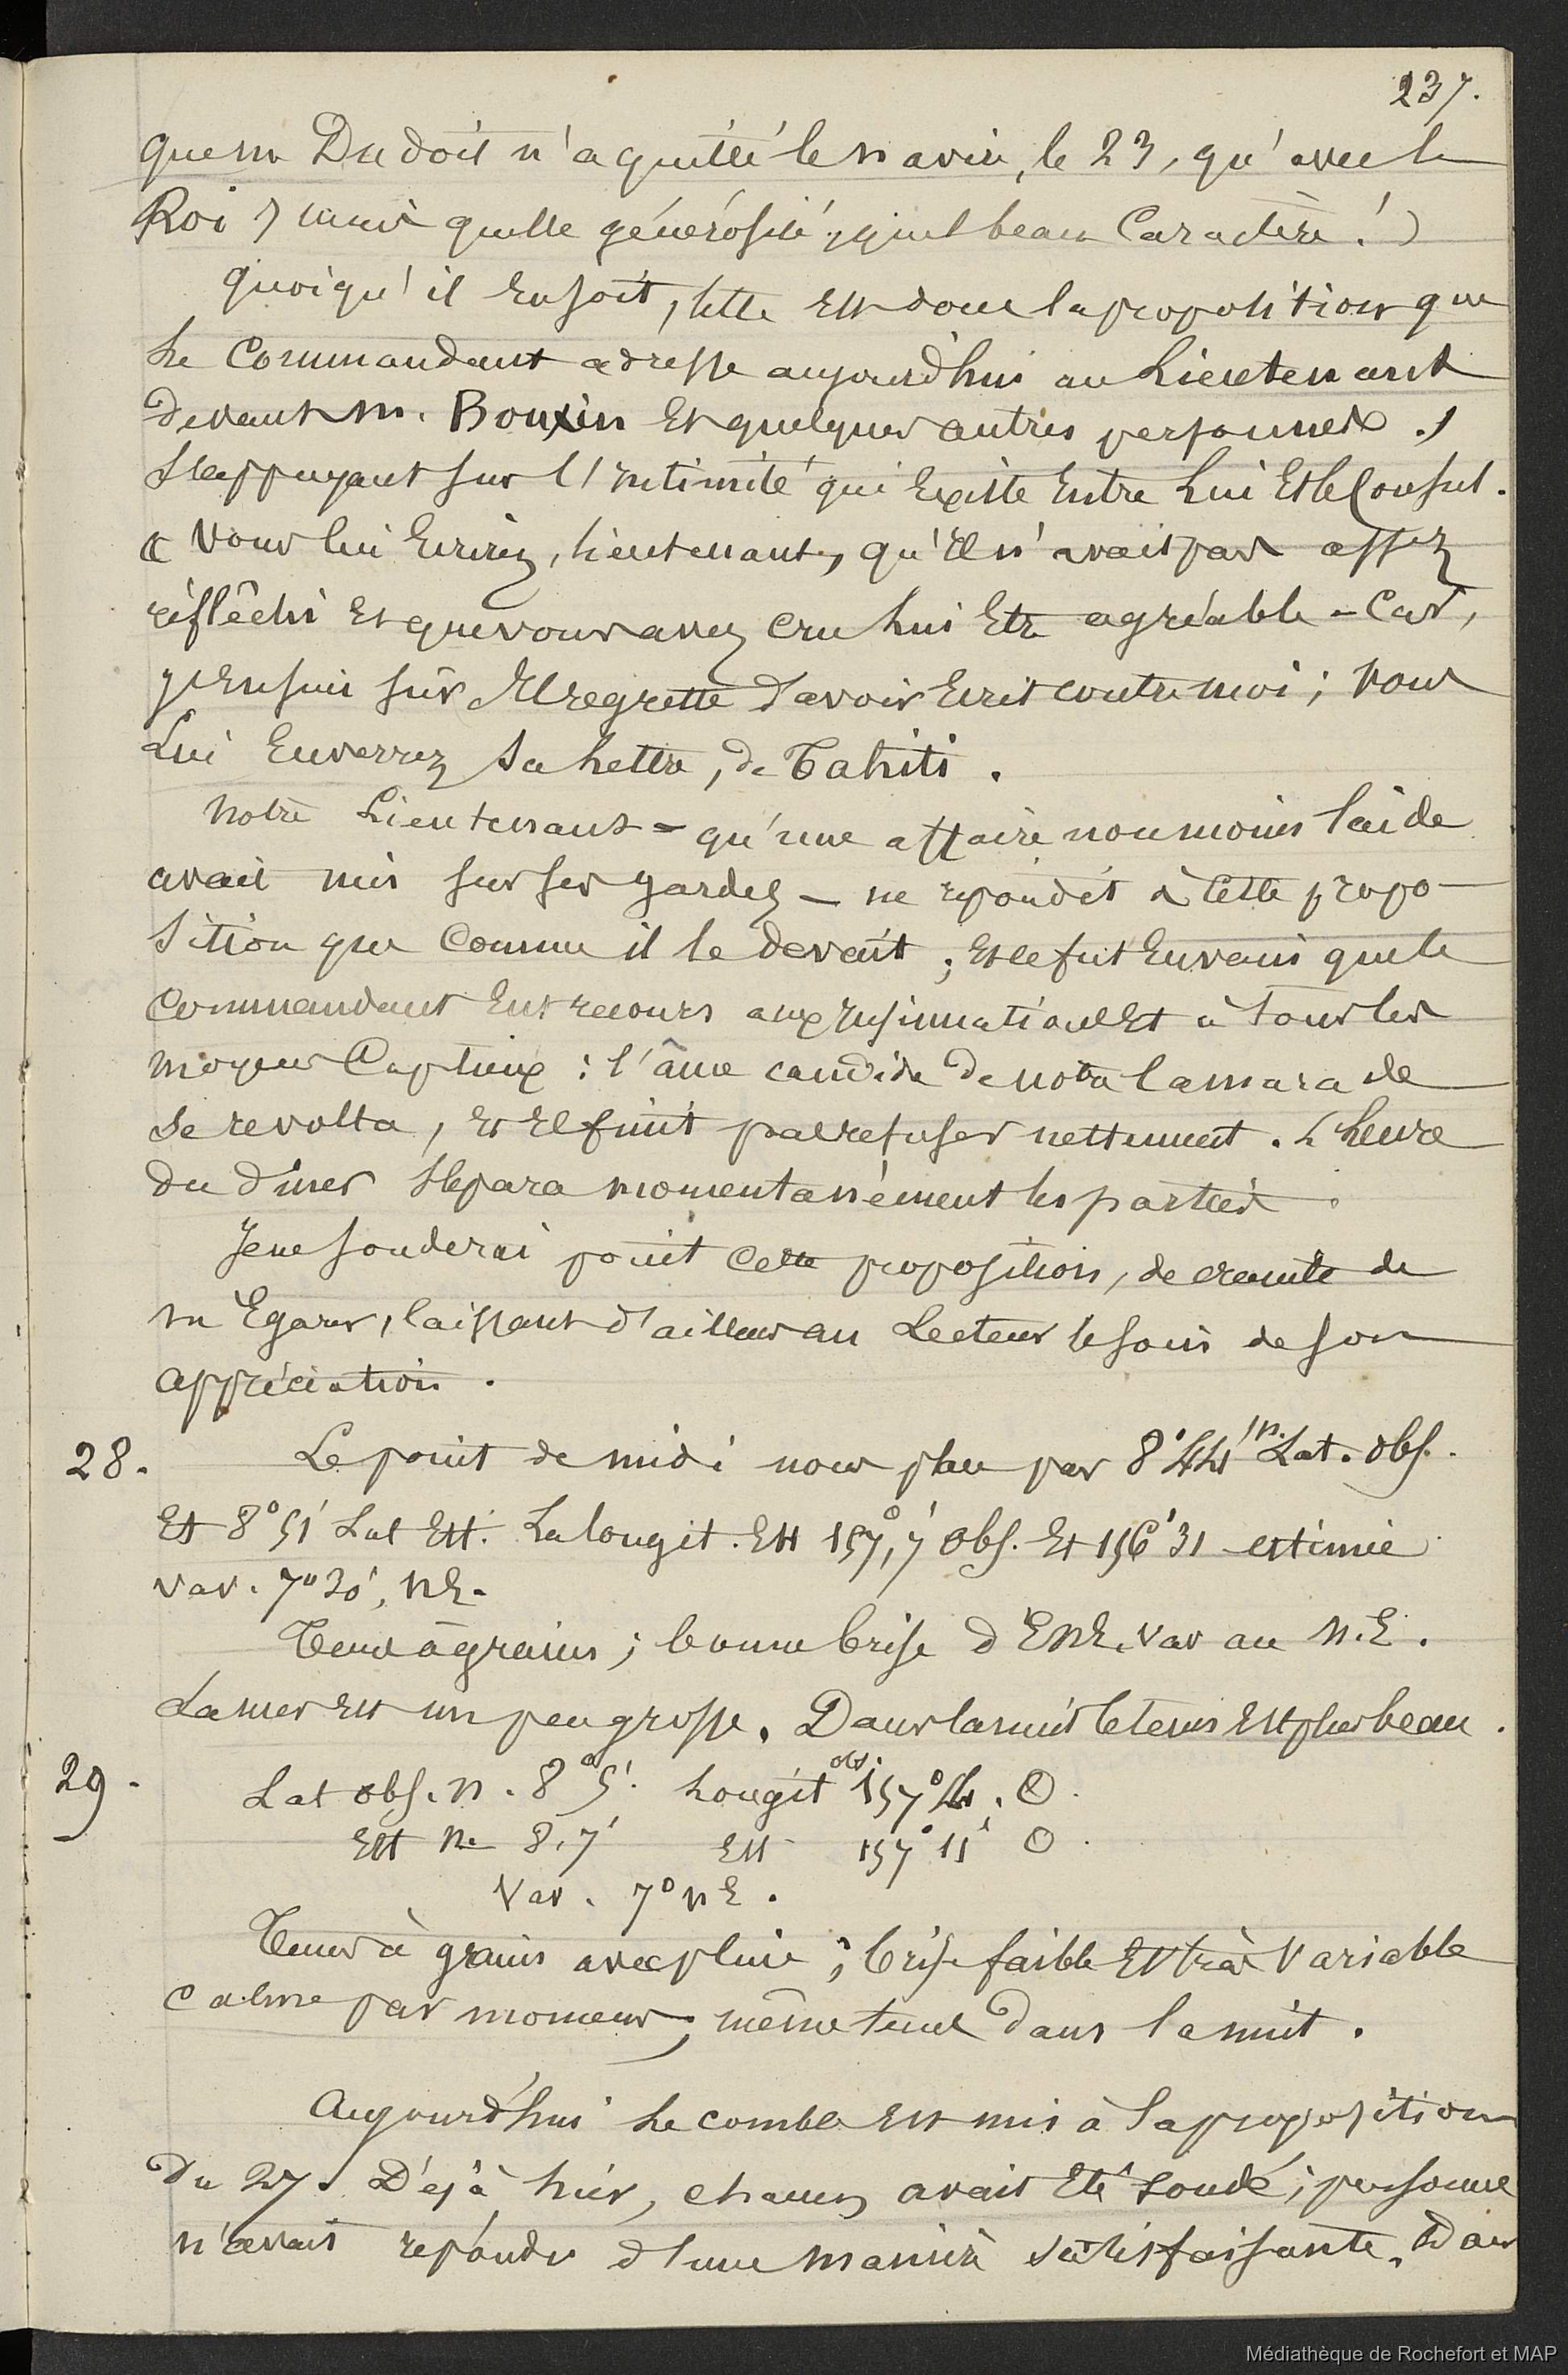 237.
que m Dudoit n'a quitté le navire, le 23, qu'avec le
Roi) mais quelle générosité, quel beau Caractère!)
quoiqu'il en soit, telle est donc la proposition que
le Commandant adresse aujourd'hui au Lieutenant
devant m. Bouxin et quelques autres personnes,
s'appuyant sur l'intimité qui existe entre lui et le Consul.
« Vous lui Ecrirez, lieutenant, qu'il n'avait pas assez
réflêchi et que vous avez cru lui être agréable - Car,
j'en suis sûr Il regrette d'avoir Ecrit contre moi; vous
Lui Enverrez sa lettre, de Tahiti.
Notre Lieutenant - qu'une affaire non moins laide
avait mis sur ses gardes - ne répondit à cette propo-
sition que comme il le devait; et ce fut Envain que le
Commandant Eut recours aux insinuations et à tous les
moyens Captieux : l'âme candide de notre camarade
se revolta, et il finit par refuser nettement. L'heure
du diner sépara momentanément les parties.
Je ne sonderai point cette proposition, de crainte de
m'Egarer, laissant d'ailleurs au Lecteur le soin de son
appréciation.
28. Le point de midi nous place par 8°44' N. Lat. obs.
Et 8°51' Lat Est. La longit. Est 157°,7' obs. Et 156°31 estimée
var. 7°20', NE.
Tems à grains; bonne brise d'ENE. var au N.E.
La mer est un peu grosse. Dans la nuit le tems est plus beau.
29. Lat obs. N. 8°5'. Longit obs. 157° O.
Est N. 8.7' Est 157°11' O.
Var. 7° NE.
Tems à grains avec pluie; brise faible et très variable
Calme par momens; même tems dans la nuit.
Aujourd'hui le comble est mis à la proposition
du 27. Déjà hier, chacun avait été sondé; personne
n'avait répondu d'une manière satisfaisante. Dans
Médiathèque de Rochefort et MAP